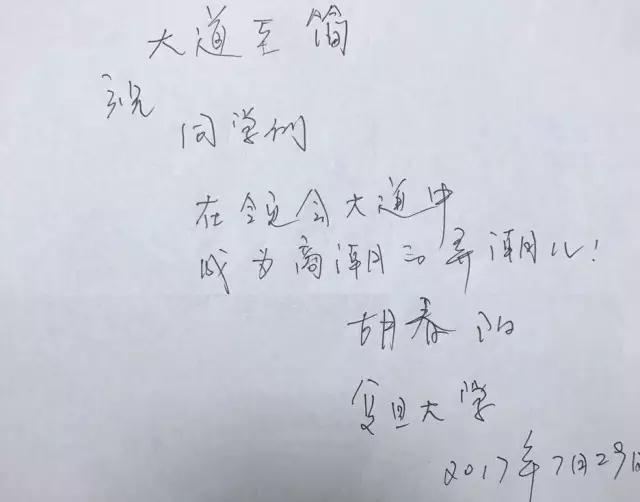 大道至简
祝
同学们
在领会大道中
成为商潮的弄潮儿!
胡春阳
复旦大学
2017年7月29日